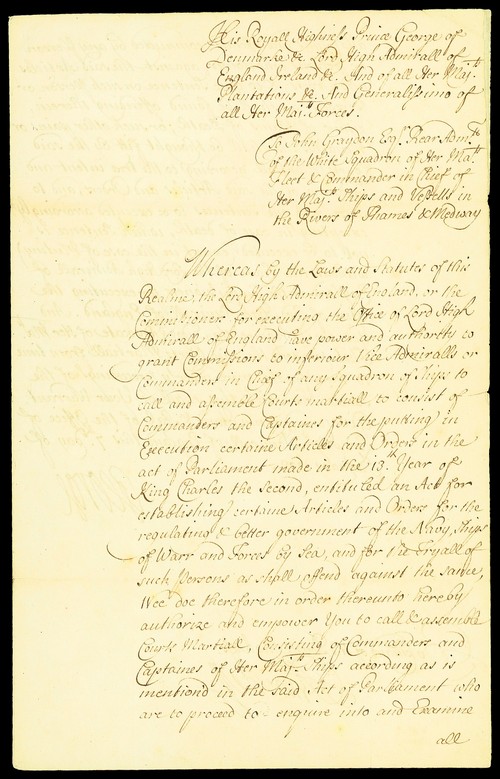 His Royall Highness Prince George of
Denmarke &c. Lord High Admirall of
England Ireland &c. And of all Her Maj.ts
Plantations &c. And Generalissimo of
all Her Maj.ts Forces.
To John Graydon Esq.r Rear Adm.ll
of the White Squadron of Her Ma.ts
Fleet & Commander in Chief of
Her Maj.ts Ships and Vessells in
the Rivers of Thames & Medway
Whereas by the Laws and Statutes of this
Realme, the Lord High Admirall of England, or the
Commissioners for executing the Office of Lord High
Admirall of England have power and authority to
grant Commissions to inferiour Vice Admiralls or
Commanders in Cheif of any Squadron of Ships to
call and assemble Courts martiall to consist of
Commanders and Captaines for the putting in
Execution certaine Articles and Orders in the
act of Parliament made in the 13.th Year of
King Charles the Second, entituled an Act for
establishing certaine Articles and Orders for the
regulating & better government of the Navy, Ships
of Warr and Forces by Sea, and for the Tryall of
such Persons as shall offend against the same,
Wee doe therefore in order thereunto hereby
authorize and empower You to call & assemble
Courts Martiall, Consisting of Commanders and
Captaines of Her Maj.ts Ships according as is
mentiond in the said Act of Parliament who
are to proceed to enquire into and Examine
all